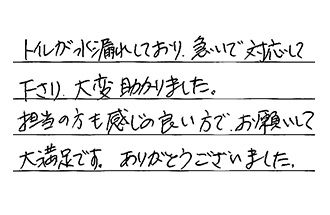 トイレが水漏れしており、急いで対応して
下さり、大変助かりました。
担当の方も感じの良い方で、お願いして
大満足です。ありがとうございました。